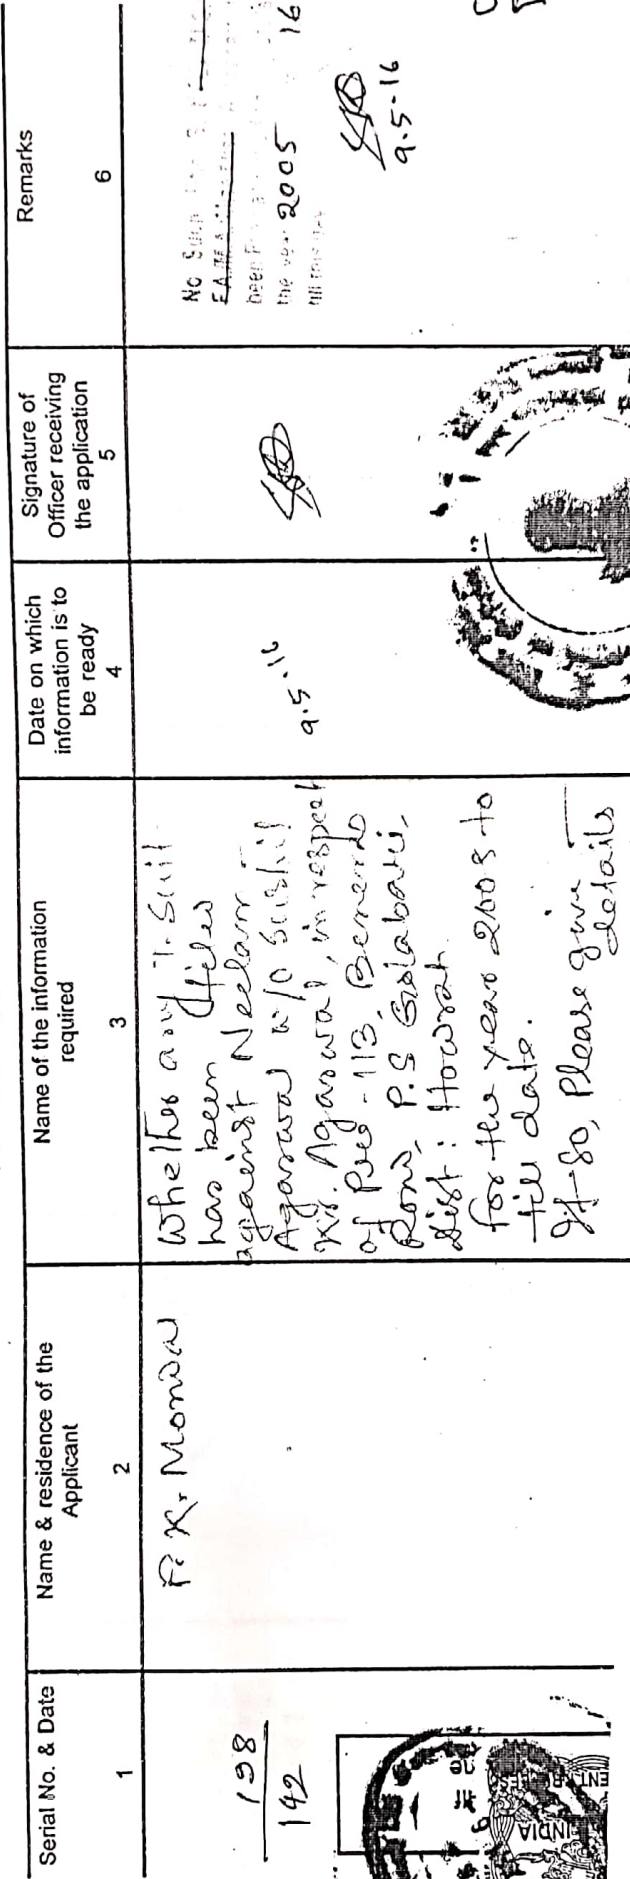 Serial No. & Date
1
Name & residence of the
Applicant
2
Name of the information
required
3
Date on which
information is to
be ready
4
Signature of
Officer receiving
the application
5
Remarks
6
198
142
P. K. Mondal
Whether any T. Suit
has been filed
against Neelam
Agarwal w/o Sushil
Kr. Agarwal, in respect
of Pre - 113, Benaras
Road, P.S Golabari,
Dist: Howrah
for the year 2005 to
till date.
If so, Please give
details
9.5.16
No Such
been
the year 2005 16
till
9.5.16
INDIA